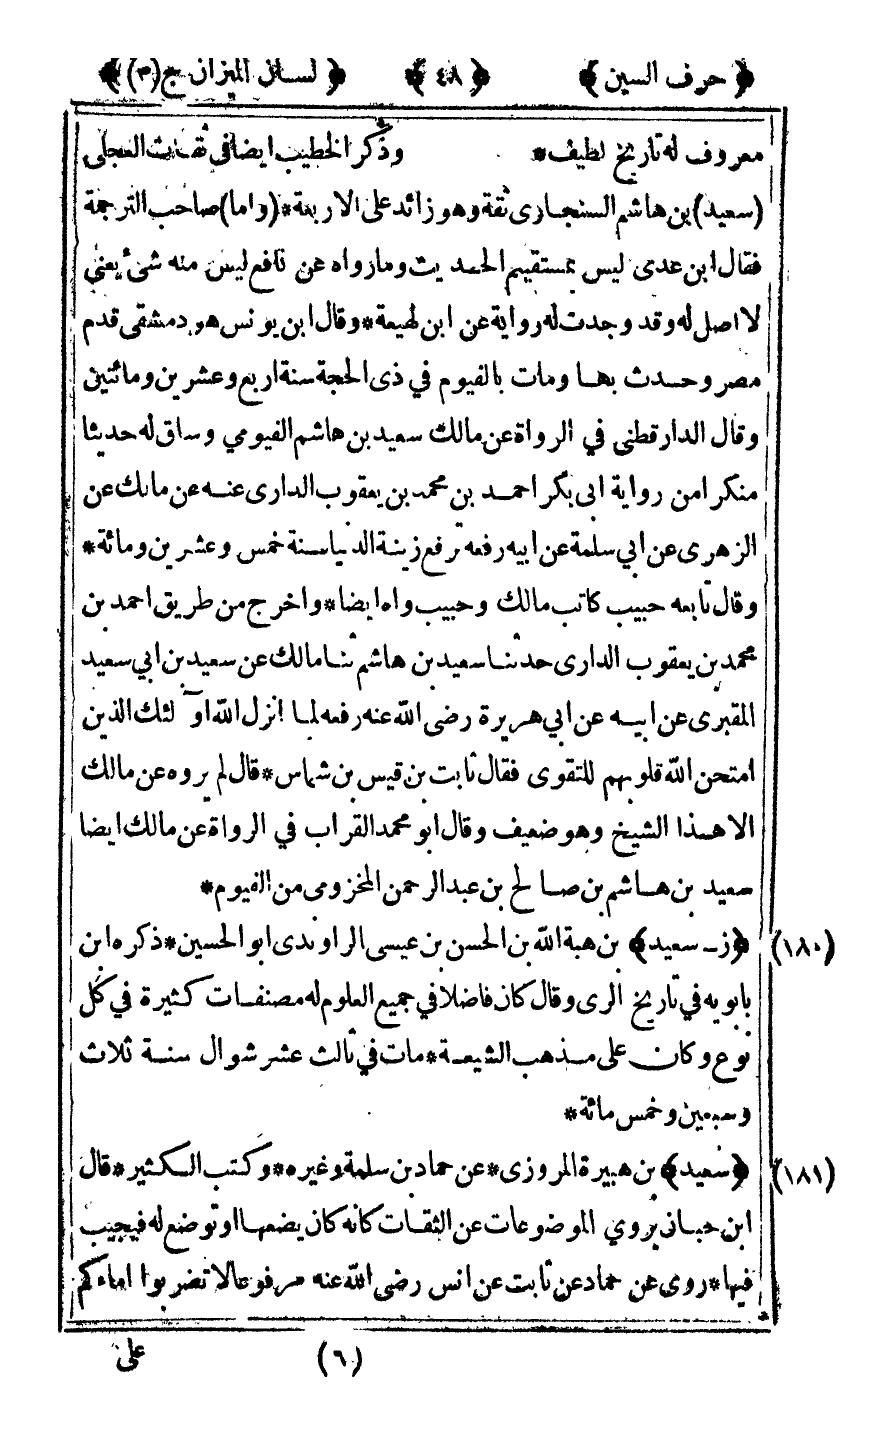 ﴿ حرف السين ﴾ ﴿ ٤٨ ﴾ ﴿ لسان الميزان ج(٣) ﴾
معروف له تاريخ لطيف * وذكر الخطيب ايضا فى ثقات العجلى
(سعيد) بن هاشم السنجارى ثقة وهو زائد على الاربعة * (واما) صاحب الترجمة
فقال ابن عدى ليس بمستقيم الحديث وما رواه عن نافع ليس منه شئ يعنى
لا اصل له وقد وجدت له رواية عن ابن لهيعة * وقال ابن يونس هو دمشقى قدم
مصر وحدث بها ومات بالفيوم في ذى الحجة سنة اربع وعشرين ومائتين
وقال الدارقطنى في الرواة عن مالك سعيد بن هاشم الفيومي وساق له حديثا
منكرا من رواية ابى بكر احمد بن محمد بن يعقوب الدارى عنه عن مالك عن
الزهرى عن ابي سلمة عن ابيه رفعه ترفع زينة الدنيا سنة خمس وعشرين ومائة *
وقال تابعه حبيب كاتب مالك وحبيب واه ايضا * واخرج من طريق احمد بن
محمد بن يعقوب الدارى حدثنا سعيد بن هاشم ثنا مالك عن سعيد بن ابي سعيد
المقبرى عن ابيه عن ابي هريرة رضى الله عنه رفعه لما انزل الله اولئك الذين
امتحن الله قلوبهم للتقوى فقال ثابت بن قيس بن شماس * قال لم يروه عن مالك
الا هذا الشيخ وهو ضعيف وقال ابو محمد القراب في الرواة عن مالك ايضا
سعيد بن هاشم بن صالح بن عبد الرحمن المخزومى من الفيوم *
﴿ ز - سعيد ﴾ بن هبة الله بن الحسن بن عيسى الراوندى ابو الحسين * ذكره ابن (١٨٠)
بابويه في تاريخ الرى وقال كان فاضلا في جميع العلوم له مصنفات كثيرة في كل
نوع وكان على مذهب الشيعة * مات في ثالث عشر شوال سنة ثلاث
وسبعين وخمس مائة *
﴿ سعيد ﴾ بن هبيرة المروزى * عن حماد بن سلمة وغيره * وكتب الكثير * قال (١٨١)
ابن حبان يروي الموضوعات عن الثقات كانه كان يضعها او توضع له فيجيب
فيها * روى عن حماد عن ثابت عن انس رضى الله عنه مرفوعا لا تضربوا اماءكم
(٦) على